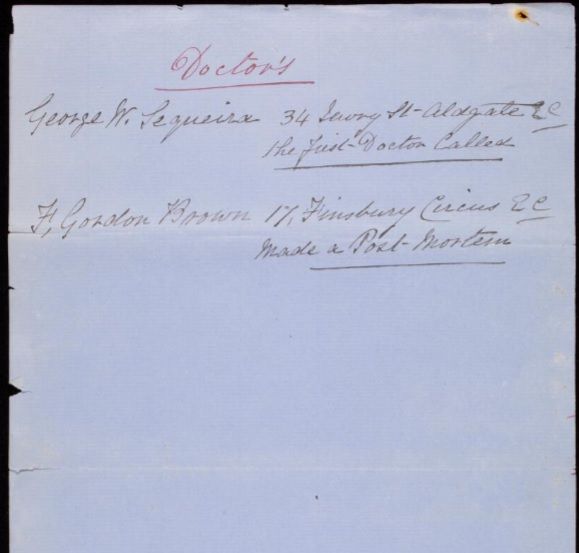 Doctor's
George W. Sequeira 34 Jewry St Aldgate EC
the first Doctor Called
F. Gordon Brown 17, Finsbury Circus EC
Made a Post-Mortem